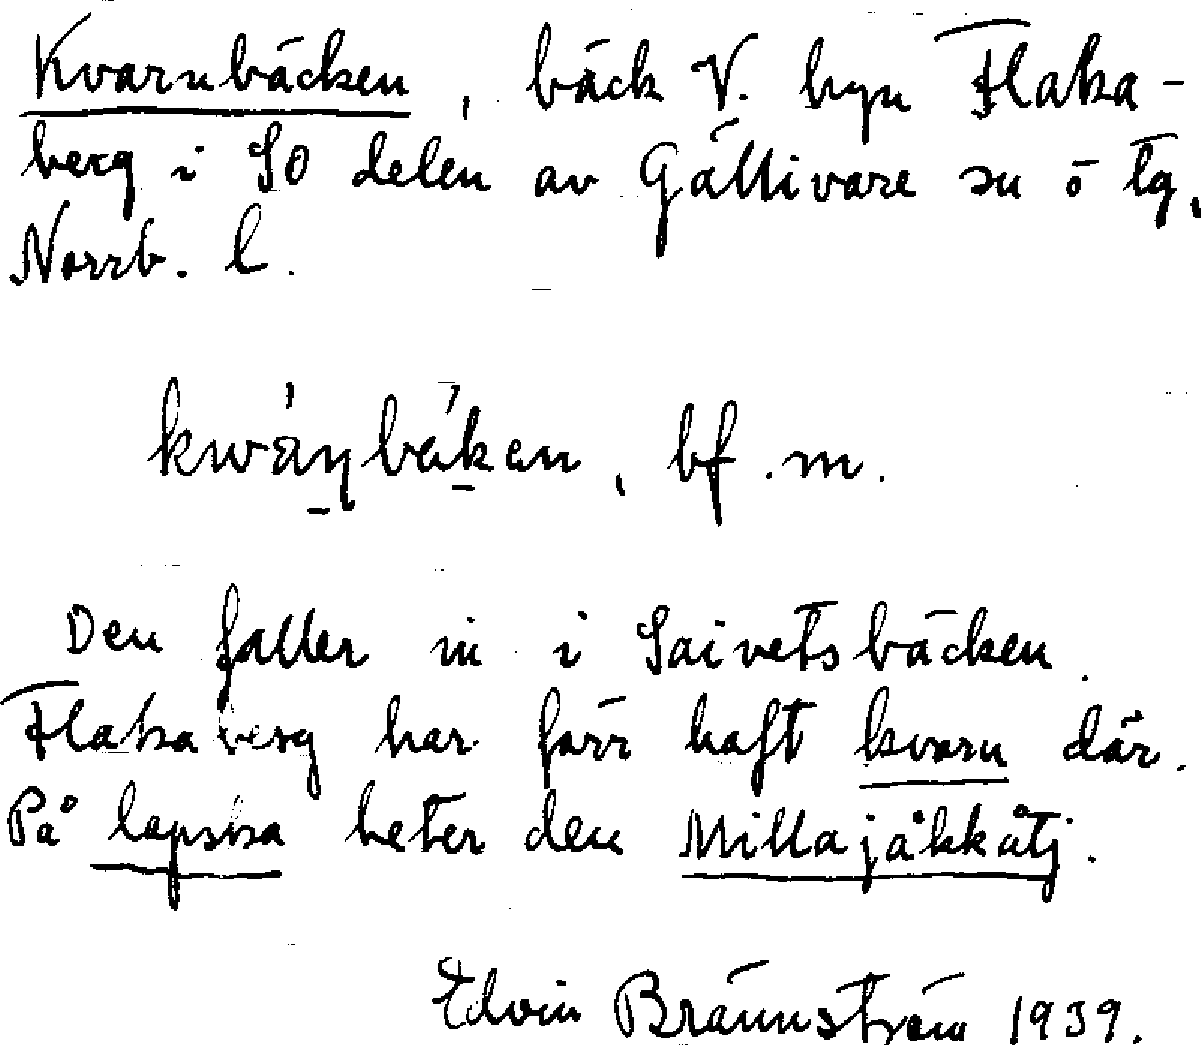 Kvarnbäcken, bäck V. byn Flaka-
berg i SO delen av Gällivare sn ö tg,
Norrb. l.
kwáŋbákan, bf. m.
Den faller in i Saivetsbäcken.
Flakaberg har förr haft kvarn där.
På lapska heter den Millajåkkåtj.
Edvin Brännström 1939.